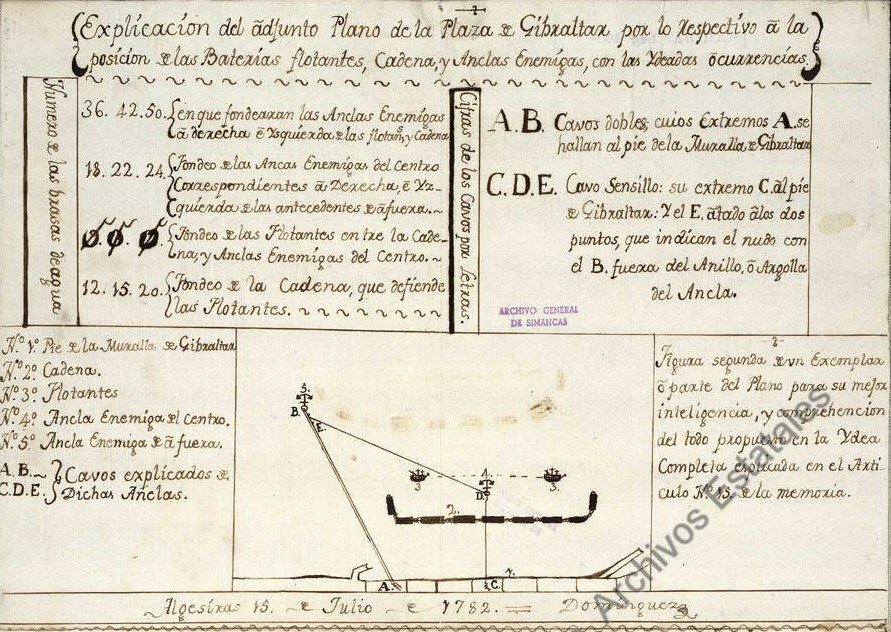 Explicacion del ãdjunto Plano de la Plaza de Gibraltar por lo Respectivo ã la
posicion de las Baterias flotantes, Cadena, y Anclas Enemigas, con las Ydeadas õcurrencias.
Numero de las brasas de agua
36. 42. 50. en que fondearan las Anclas Enemigas
ã derecha ê Ysquierda de las flotans, y Cadena
18. 22. 24. Fondeo de las Ancas Enemigas del Centro
Correspondientes ã Derecha, ê Yz-
quierda de las antecedentes de ãfuera.
Fondeo de las Flotantes entre la Cade-
na, y Anclas Enemigas del Centro.
12. 15. 20. Fondeo de la Cadena, que defiende
las Flotantes.
Cifras de los Cavos por Letras.
A.B. Cavos dobles; cuios Extremos A. se
hallan al pie de la Muralla de Gibraltar
C.D.E. Cavo Sensillo: su extremo C. al pie
de Gibraltar: Y el E, ãtado ãlos dos
puntos, que indican el nudo con
el B. fuera del Anillo, õ Argolla
del Ancla.
ARCHIVO GENERAL
DE SIMANCAS
Nº 1º Pie de la Muralla de Gibraltar
Nº 2º Cadena.
Nº 3º Flotantes
Nº 4º Ancla Enemiga del Centro.
Nº 5º Ancla Enemiga de ã fuera.
A.B.
C.D.E. Cavos explicados de
Dichas Anclas.
5.
B.
E.
3.
4.
3.
D.
2.
A.
C.
1.
2
Figura segunda de vn Exemplar
õ parte del Plano para su mejor
inteligencia, y comprehencion
del todo propuesto en la Ydea
Completa esplicada en el Arti-
culo Nº 15. de la memoria.
Algesiras 15. de Julio de 1782. = Dominguez
Archivos Estatales